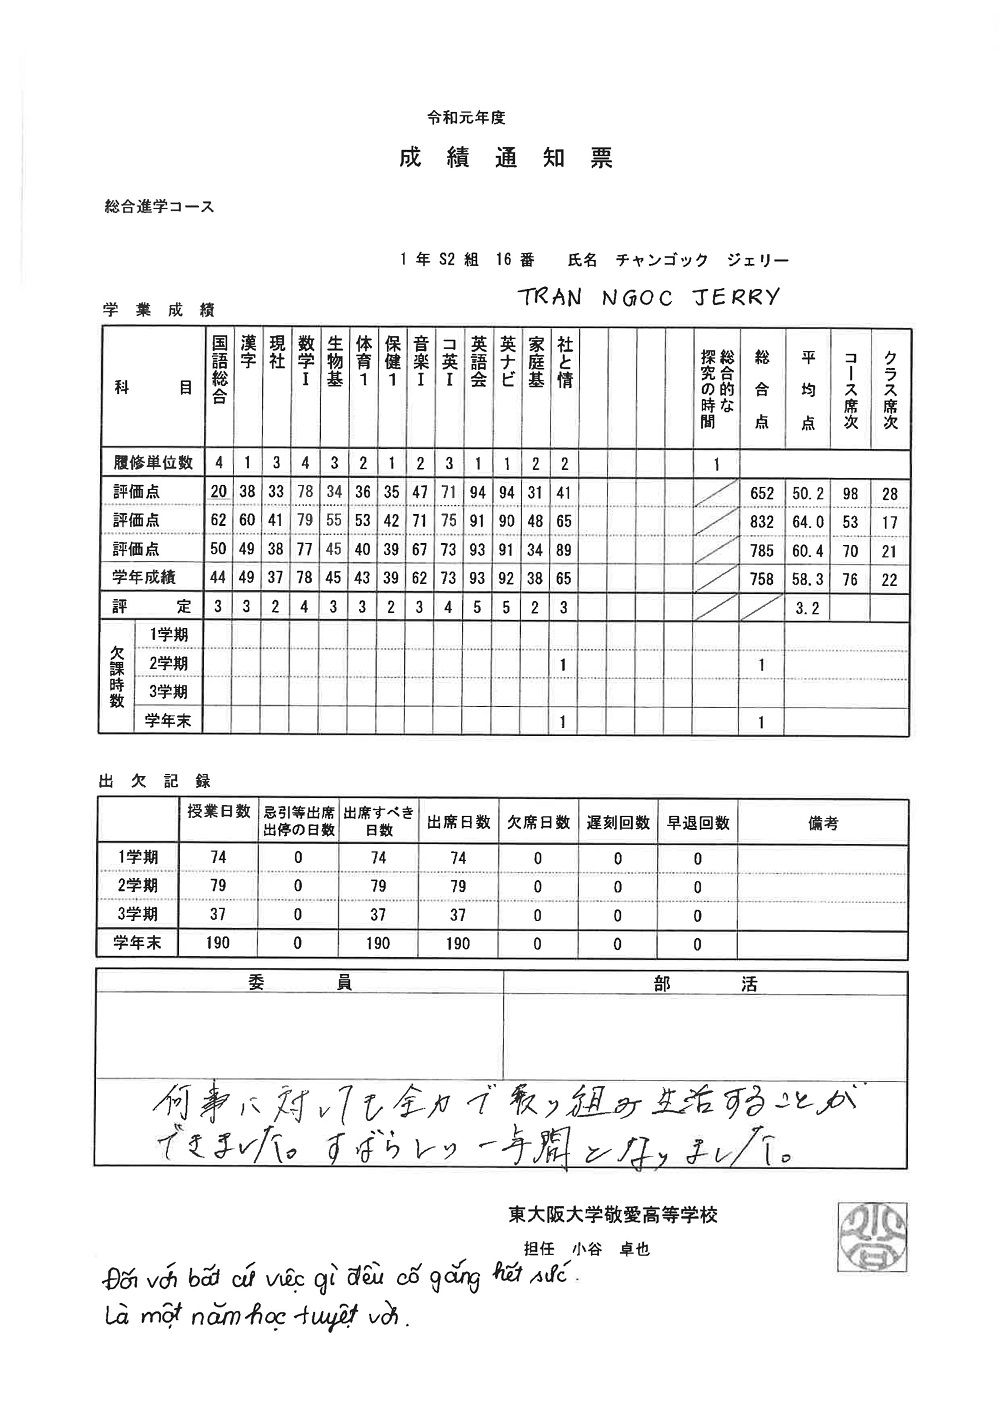 令和元年度
成績通知票
総合進学コース
1年 S2組 16番 氏名 チャンゴック ジェリー
TRAN NGOC JERRY
学業成績
科目 国語総合 漢字 現社 数学Ⅰ 生物基 体育1 保健1 音楽Ⅰ コ英Ⅰ 英語会 英ナビ 家庭基 社と情 総合的な探究の時間 総合点 平均点 コース席次 クラス席次
履修単位数 4 1 3 4 3 2 1 2 3 1 1 2 2 1
評価点 20 38 33 78 34 36 35 47 71 94 94 31 41 652 50.2 98 28
評価点 62 60 41 79 55 53 42 71 75 91 90 48 65 832 64.0 53 17
評価点 50 49 38 77 45 40 39 67 73 93 91 34 89 785 60.4 70 21
学年成績 44 49 37 78 45 43 39 62 73 93 92 38 65 758 58.3 76 22
評定 3 3 2 4 3 3 2 3 4 5 5 2 3 3.2
欠課時数
1学期
2学期 1 1
3学期
学年末 1 1
出欠記録
授業日数 忌引等出席出停の日数 出席すべき日数 出席日数 欠席日数 遅刻回数 早退回数 備考
1学期 74 0 74 74 0 0 0
2学期 79 0 79 79 0 0 0
3学期 37 0 37 37 0 0 0
学年末 190 0 190 190 0 0 0
委員 部活
何事に対しても全力で取り組み生活することが
できました。すばらしい一年間となりました。
東大阪大学敬愛高等学校
担任 小谷 卓也
Đối với bất cứ việc gì đều cố gắng hết sức.
Là một năm học tuyệt vời.